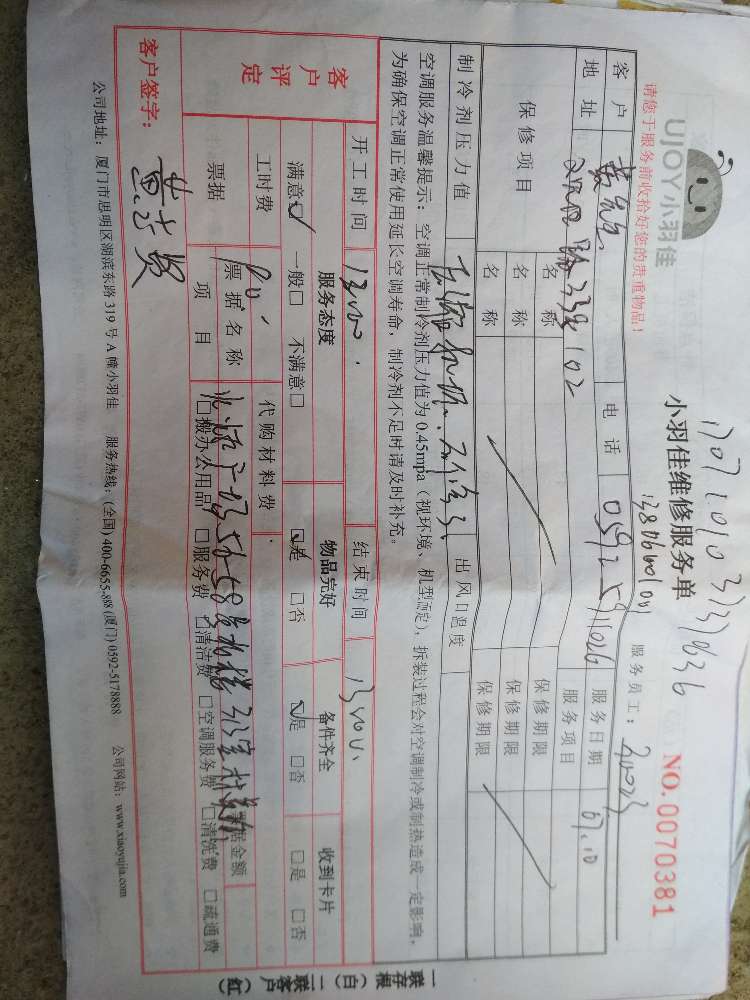 UJOY小羽佳
17071010 33370636
小羽佳维修服务单
NO.0070381
请您于服务前收拾好您的贵重物品!
服务员工:
客户 黄先生 电话 0592 5911026 服务日期 07.10
地址 路 33号102 服务项目
保修项目 名称 保修期限
名称 保修期限
名称 保修期限
制冷剂压力值 出风口温度
空调服务温馨提示:空调正常制冷剂压力值为0.45mpa(视环境、机型而定),拆装过程会对空调制冷或制热造成一定影响,
为确保空调正常使用延长空调寿命,制冷剂不足时请及时补充。
开工时间 结束时间
客户评定 服务态度 物品完好 备件齐全 收到卡片
满意☑ 一般□ 不满意□ ☑是 □否 ☑是 □否 □是 □否
工时费 80. 代购材料费
票据 票据名称 票据金额
项目 □搬办公用品 □服务费 □清洁费 □空调服务费 □清洗费 □疏通费
客户签字:
公司地址:厦门市思明区湖滨东路319号A幢小羽佳 服务热线:(全国)400-6655-888 (厦门)0592-5178888 公司网站:www.xiaoyujia.com
一联存根(白)二联客户(红)